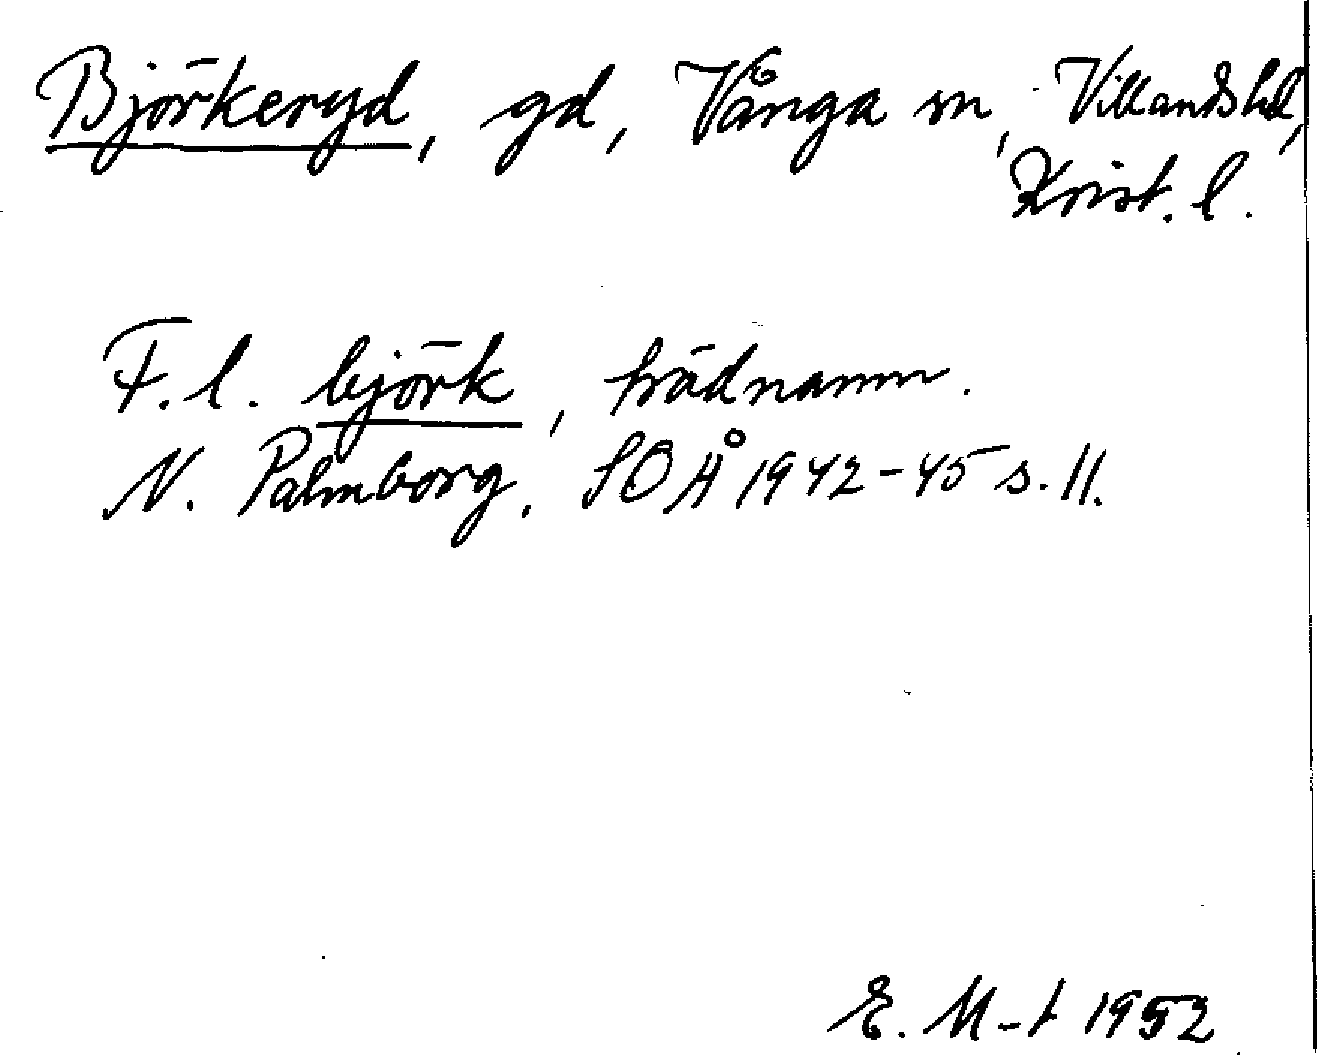 Björkeryd, gd, Vånga sn, Villands hd,
Krist. l.
F. l. björk, trädnamn.
N. Palmborg, SOÅ 1942-45 s. 11.
E. M-t 1952